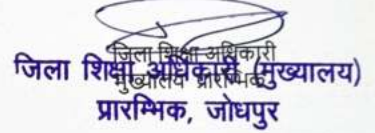 जिला शिक्षा अधिकारी
मुख्यालय प्रारम्भिक
जिला शिक्षा अधिकारी (मुख्यालय)
प्रारम्भिक, जोधपुर